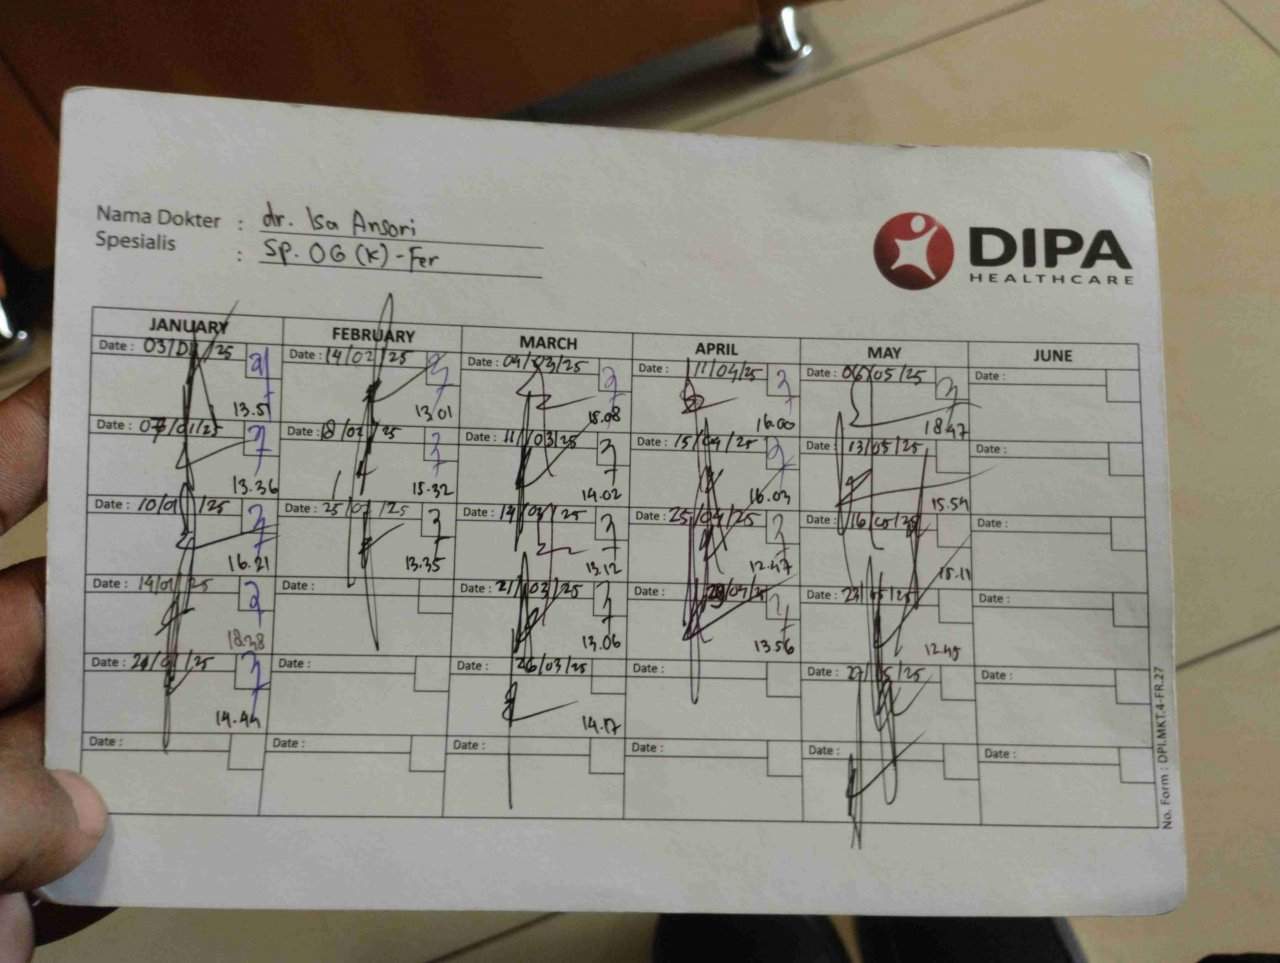 Nama Dokter : dr. Isa Ansori
Spesialis : Sp. OG (K) - Fer
DIPA
HEALTHCARE
JANUARY FEBRUARY MARCH APRIL MAY JUNE
Date : 03/01/25 Date : 14/02/25 Date : 04/03/25 Date : 11/04/25 Date : 06/05/25 Date :
13.51 13.01 15.08 16.00 18.47
Date : 07/01/25 Date : 18/02/25 Date : 11/03/25 Date : 15/04/25 Date : 13/05/25 Date :
13.36 15.32 14.02 16.03 15.54
Date : 10/01/25 Date : 25/02/25 Date : 14/03/25 Date : 25/04/25 Date : 16/05/25 Date :
16.21 13.35 13.12 12.47 15.11
Date : 14/01/25 Date : Date : 21/03/25 Date : 29/04/25 Date : 23/05/25 Date :
18.38 13.06 13.56 12.45
Date : 21/01/25 Date : Date : 26/03/25 Date : Date : 27/05/25 Date :
14.44 14.17
Date : Date : Date : Date : Date : Date :
No. Form : DPI.MKT.4-FR.27